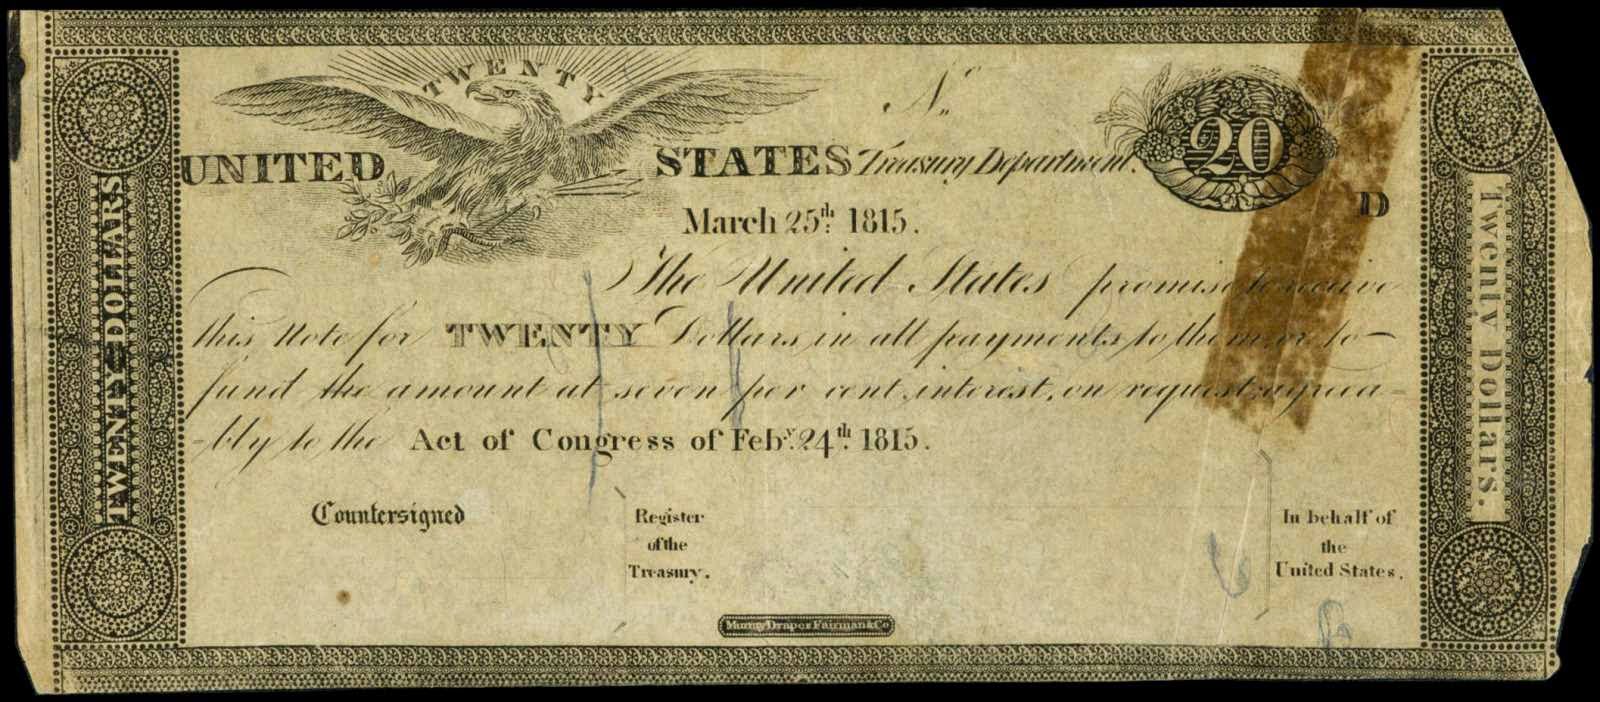 TWENTY
UNITED STATES Treasury Department.
No
20
D
March 25th. 1815.
The United States promise to receive
this Note for TWENTY Dollars in all payments to them, or to
fund the amount at seven per cent. interest, on request, agreea-
-bly to the Act of Congress of Feby. 24th. 1815.
Countersigned
Register
of the
Treasury.
In behalf of
the
United States.
Murray Draper Fairman & Co
TWENTY DOLLARS
Twenty Dollars.